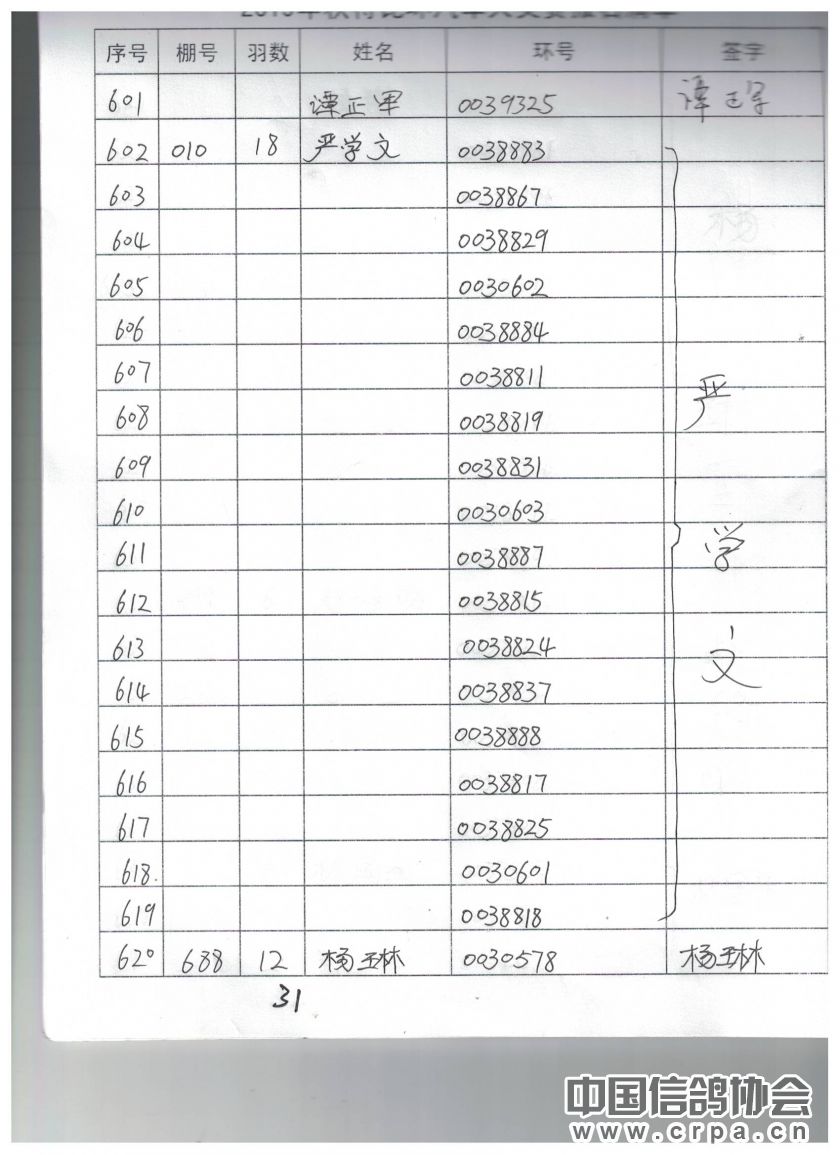 序号 棚号 羽数 姓名 环号 签字
601 谭正军 0039325 谭正军
602 010 18 严学文 0038883
603 0038867
604 0038829
605 0030602
606 0038884
607 0038811
608 0038819
609 0038831
610 0030603
611 0038887
612 0038815
613 0038824
614 0038837
615 0038888
616 0038817
617 0038825
618. 0030601
619 0038818
严
学
文
620 688 12 杨玉林 0030578 杨玉林
31
中国信鸽协会
www.crpa.cn